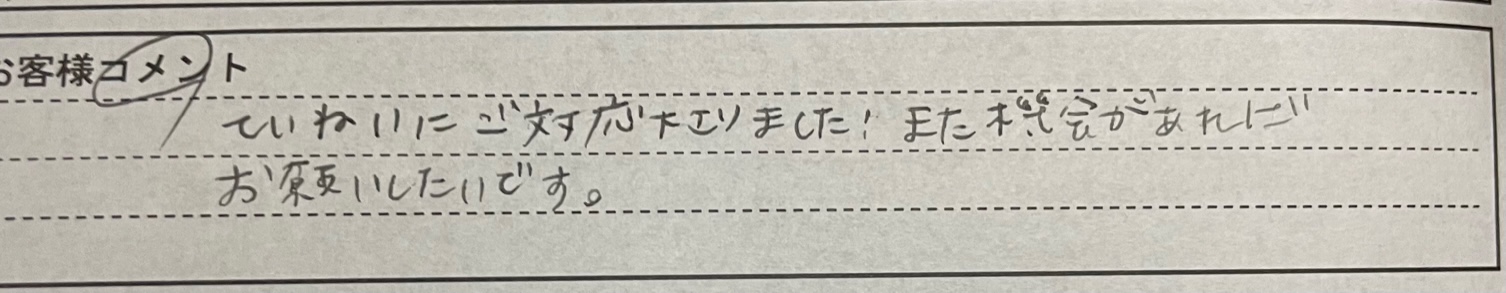 お客様コメント
ていねいにご対応下さりました！また機会があれば
お願いしたいです。